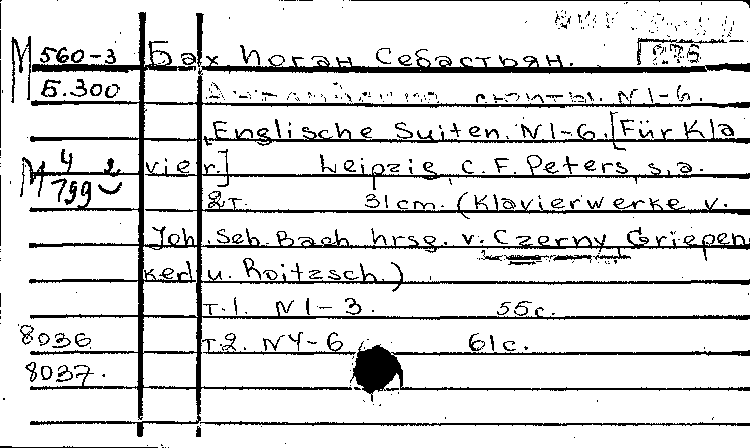 М 560-3 Бах Йоган Себастьян. 275
Б.300 Английские сюиты. N1-6.
Englische Suiten. N1-6. [Für Kla
М 4 2 vier.] Leipzig, C. F. Peters, s.a.
799 2т. 31cm. (Klavierwerke v.
Joh. Seb. Bach hrsg. v. Czerny, Griepen
kerl u. Roitzsch.)
т.1. N1-3. 55с.
8036 т.2. N4-6 61с.
8037.